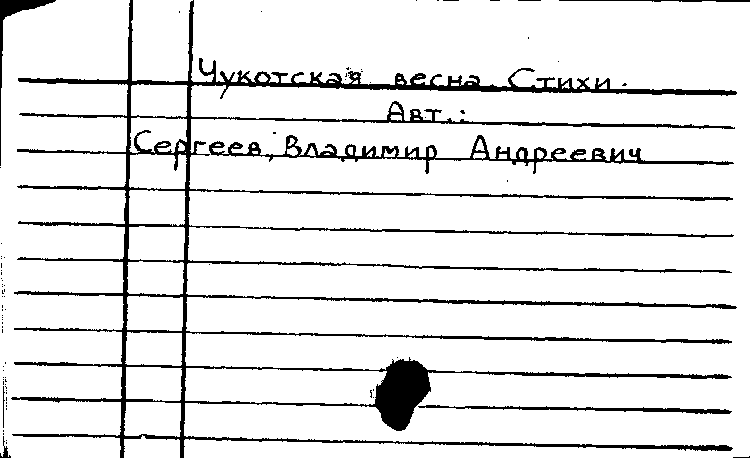 Чукотская весна. Стихи.
Авт.:
Сергеев, Владимир Андреевич